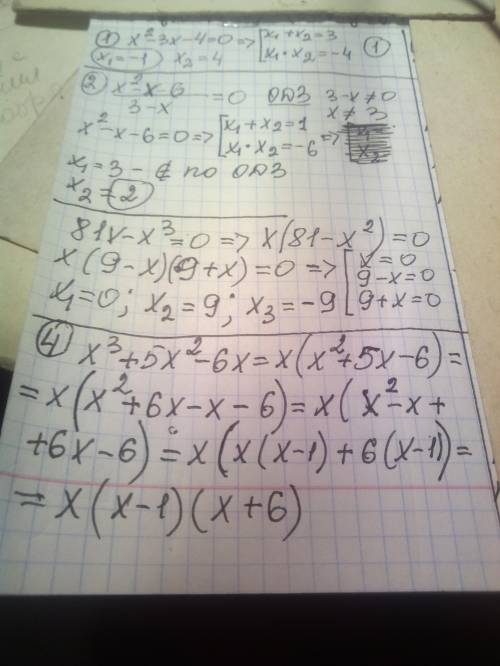 ① x²-3x-4=0 => [x₁+x₂=3
x₁=-1 x₂=4 x₁·x₂=-4 ①
② x²-x-6
3-x =0 ОДЗ 3-x≠0
x≠3
x²-x-6=0 => [x₁+x₂=1
x₁·x₂=-6 =>
x₁=3 - ∉ по ОДЗ
x₂=2
81x-x³=0 => x(81-x²)=0
x(9-x)(9+x)=0 => [x=0
9-x=0
x₁=0; x₂=9; x₃=-9 9+x=0
④ x³+5x²-6x=x(x²+5x-6)=
=x(x²+6x-x-6)=x(x²-x+
+6x-6)=x(x(x-1)+6(x-1))=
=x(x-1)(x+6)